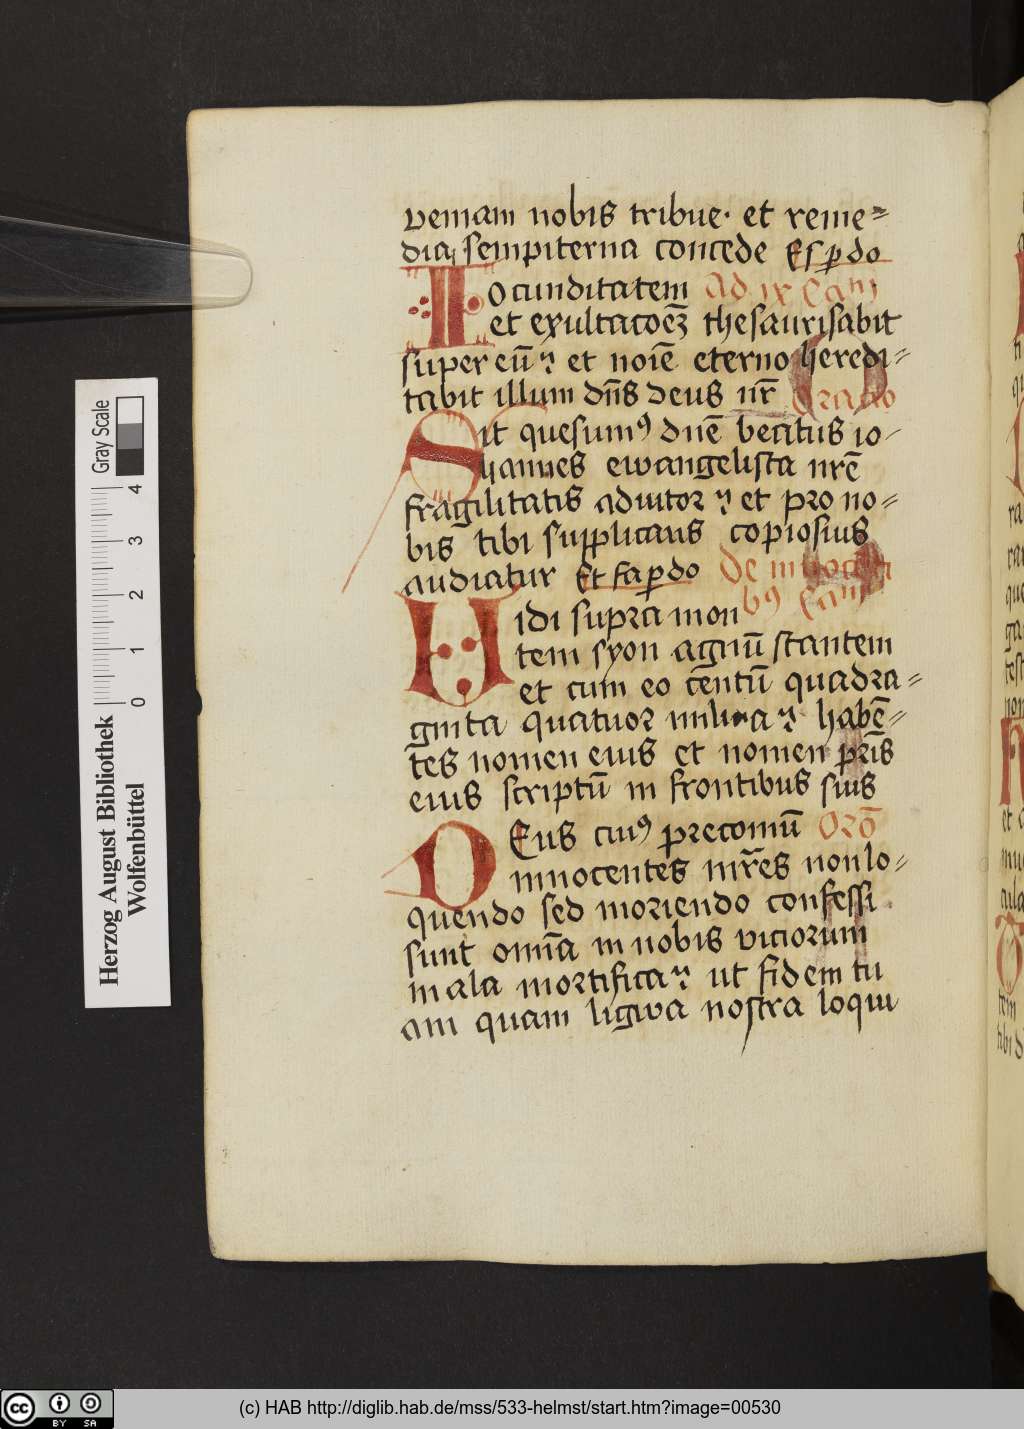 veniam nobis tribue· et reme⸗
dia sempiterna concede Es p̱do
Iocunditatem Ad ix Cam
et exultacōeꝫ thesaurisabit
super eū ⁊ et noīe eterno heredi⸗
tabit illum dn̄s deus nr̄ Oracio
Sit quesumꝰ dn̄e beatus io⸗
hannes ewangelista nr̄e
fragilitatis adiutor ⁊ et pro no⸗
bis tibi supplicans copiosius
audiatur Et fa p̱do De innocēti
Uidi supra mon bꝰ Cam
tem syon agnū stantem
et cum eo cēntū quadra⸗
ginta quatuor milia ⁊ habē⸗
tēs nomen eius et nomen pr̄is
eius scriptū in frontibus suis
DEus cuiꝰ preconiū Orō
innocentes mr̄es non lo⸗
quendo sed moriendo confessi
sunt omīa in nobis viciorum
mala mortifica ⁊ ut fidem tu
am quam ligwa nostra loqui
Herzog August Bibliothek
Wolfenbüttel
0 1 2 3 4
Gray Scale
cc BY SA
(c) HAB http://diglib.hab.de/mss/533-helmst/start.htm?image=00530